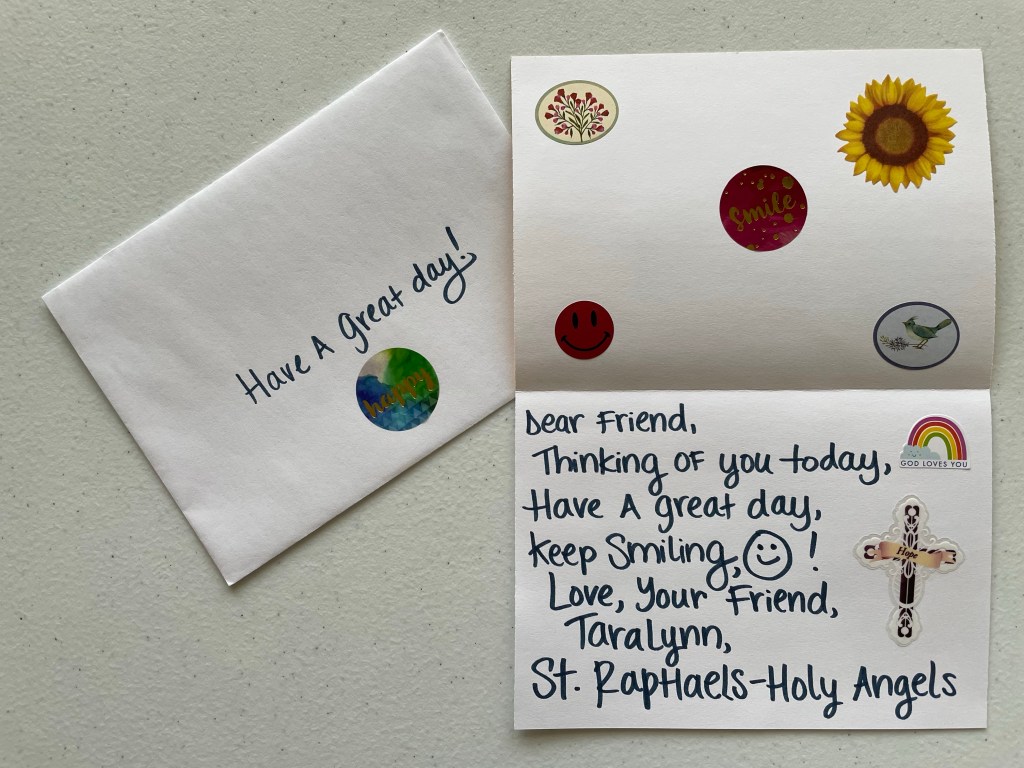 Have A great day!
happy
Smile
Dear Friend,
Thinking OF you today,
Have A great day,
Keep Smiling, !
Love, Your Friend,
TaraLynn,
St. RapHaels-Holy Angels
GOD LOVES YOU
Hope